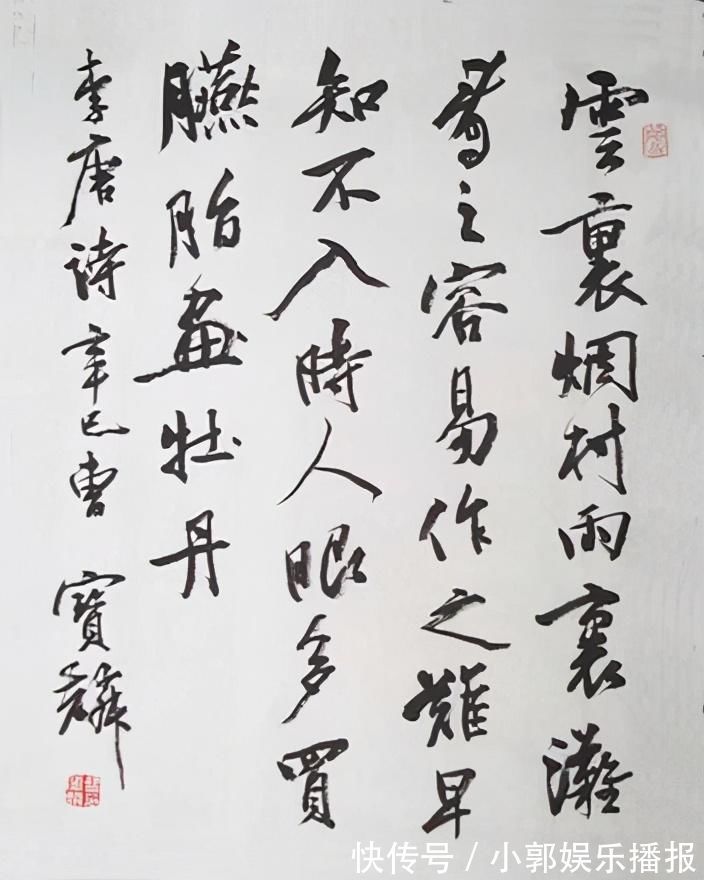 雲裏烟村雨裏灘
看之容易作之難早
知不入時人眼多買
臙脂畫牡丹
李唐詩辛巳曹寶麟
快传号 / 小郭娱乐播报